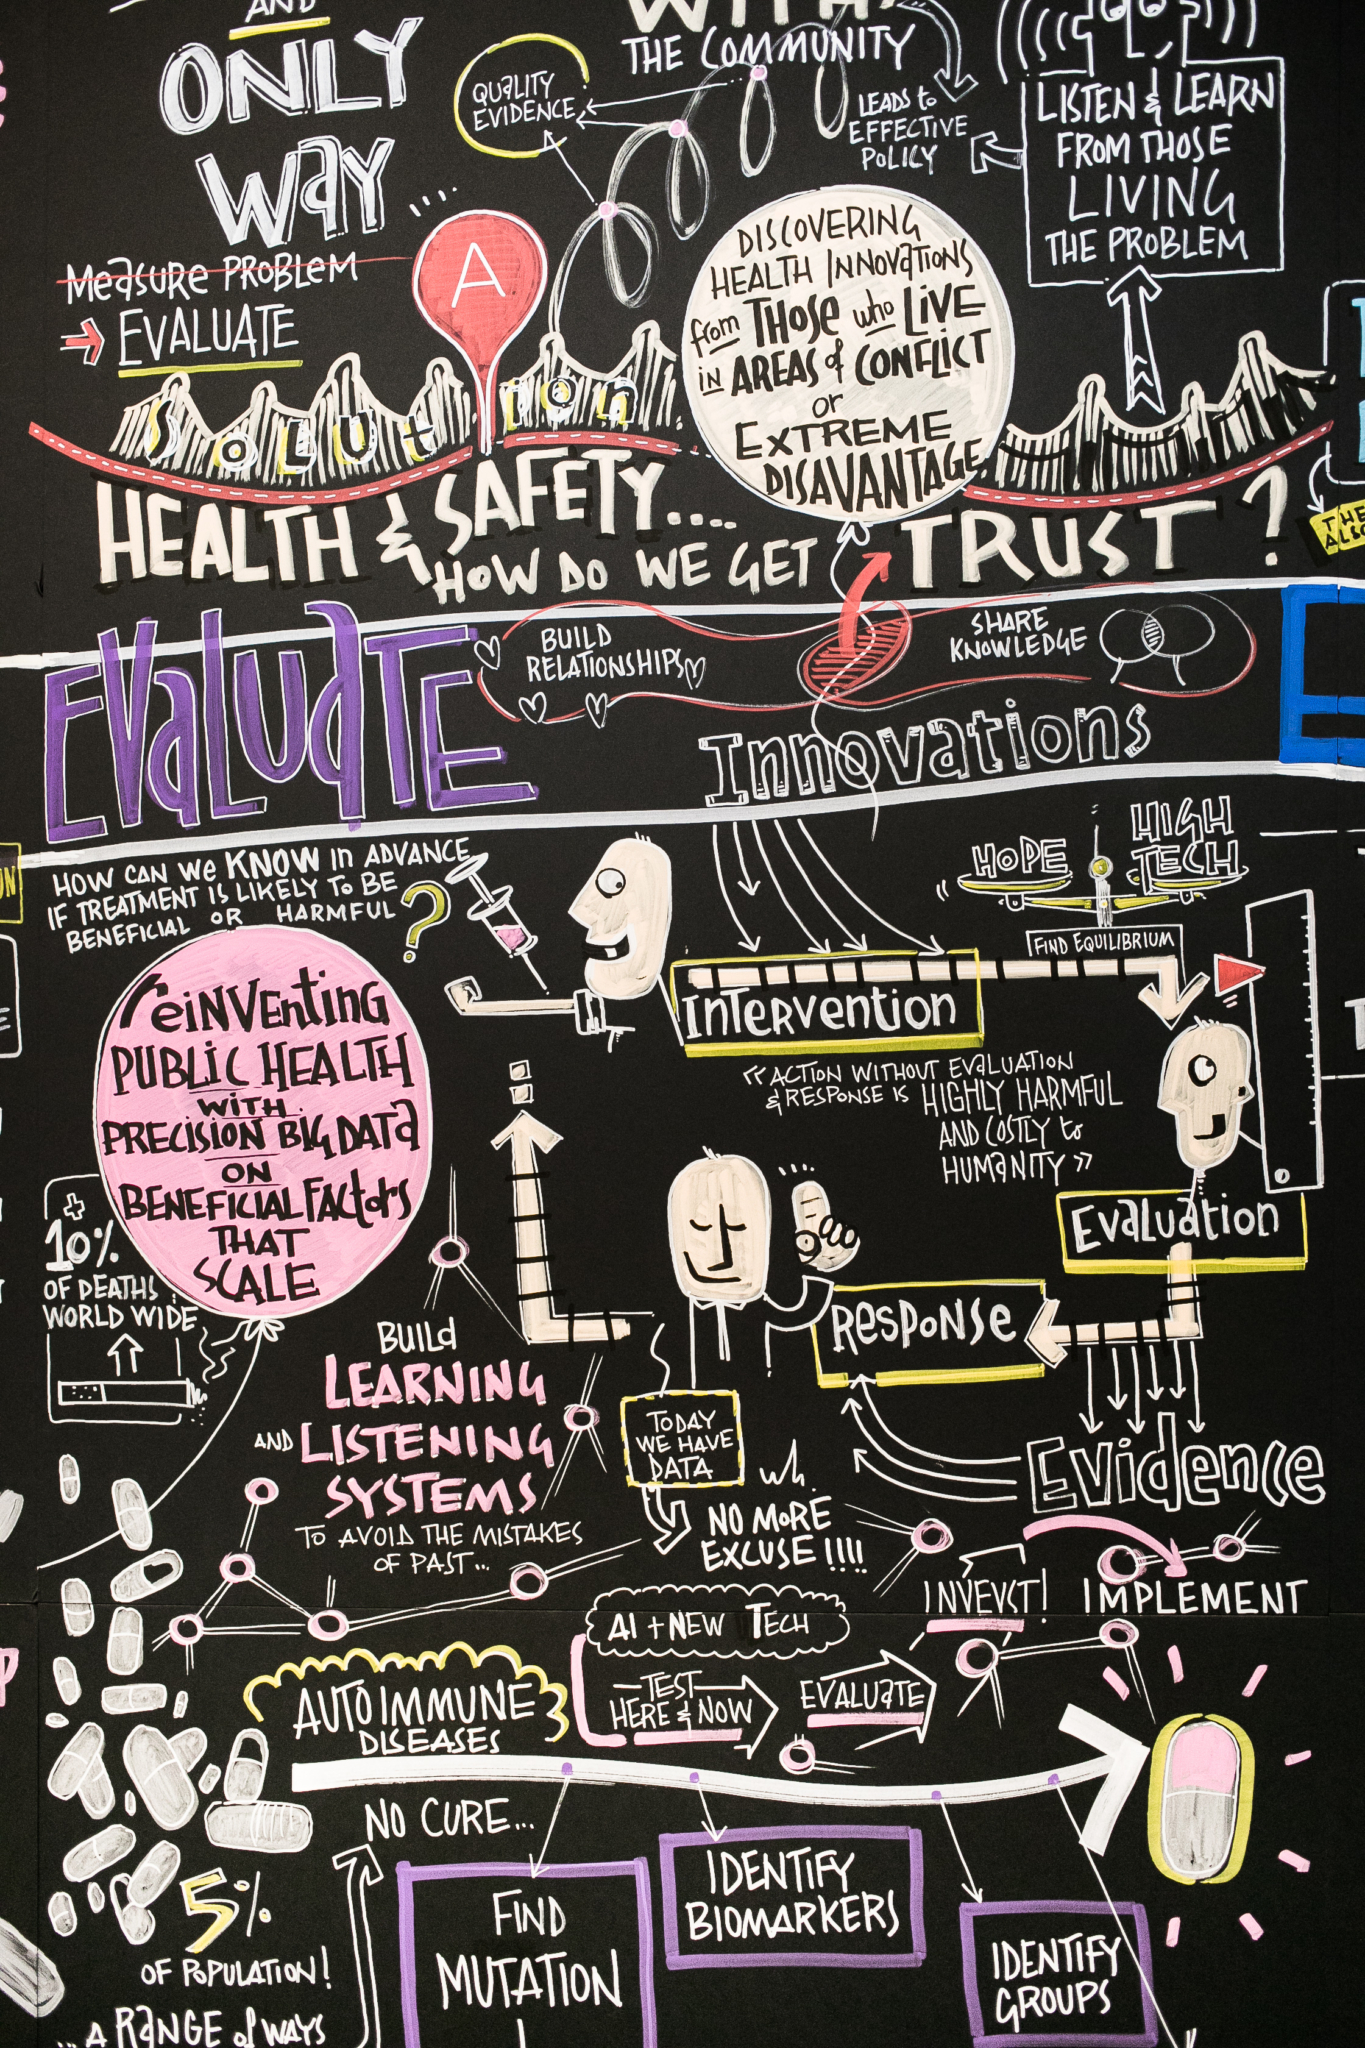 AND
ONLY
WAY
Measure PROBLEM
EVALUATE
QUALITY
EVIDENCE
WITH
THE COMMUNITY
LEADS to
EFFECTIVE
POLICY
LISTEN & LEARN
FROM THOSE
LIVING
THE PROBLEM
A
Solution
DISCOVERING
HEALTH INNOVATIONS
from THOSE who LIVE
IN AREAS of CONFLICT
or
EXTREME
DISAVANTAGE
HEALTH & SAFETY....
HOW DO WE GET TRUST?
THE
ALSO
EVALUATE
BUILD
RELATIONSHIPS
SHARE
KNOWLEDGE
Innovations
HOW CAN WE KNOW IN ADVANCE
IF TREATMENT IS LIKELY TO BE
BENEFICIAL OR HARMFUL ?
HOPE
HIGH
TECH
FIND EQUILIBRIUM
Intervention
« ACTION WITHOUT EVALUATION
& RESPONSE IS HIGHLY HARMFUL
AND COSTLY to
HUMANITY »
reINVENting
PUBLIC HEALTH
WITH
PRECISION BIG DATA
ON
BENEFICIAL FACTORS
THAT
SCALE
Evaluation
RESPONSE
10%
OF DEATHS
WORLD WIDE
BUILD
LEARNING
AND LISTENING
SYSTEMS
TO AVOID THE MISTAKES
OF PAST...
TODAY
WE HAVE
DATA
NO MORE
EXCUSE !!!!
Evidence
INVEVST!
IMPLEMENT
AI + NEW TECH
TEST
HERE & NOW
EVALUATE
AUTOIMMUNE
DISEASES
NO CURE...
5%
OF POPULATION!
...A RANGE of WAYS
FIND
MUTATION
IDENTIFY
BIOMARKERS
IDENTIFY
GROUPS